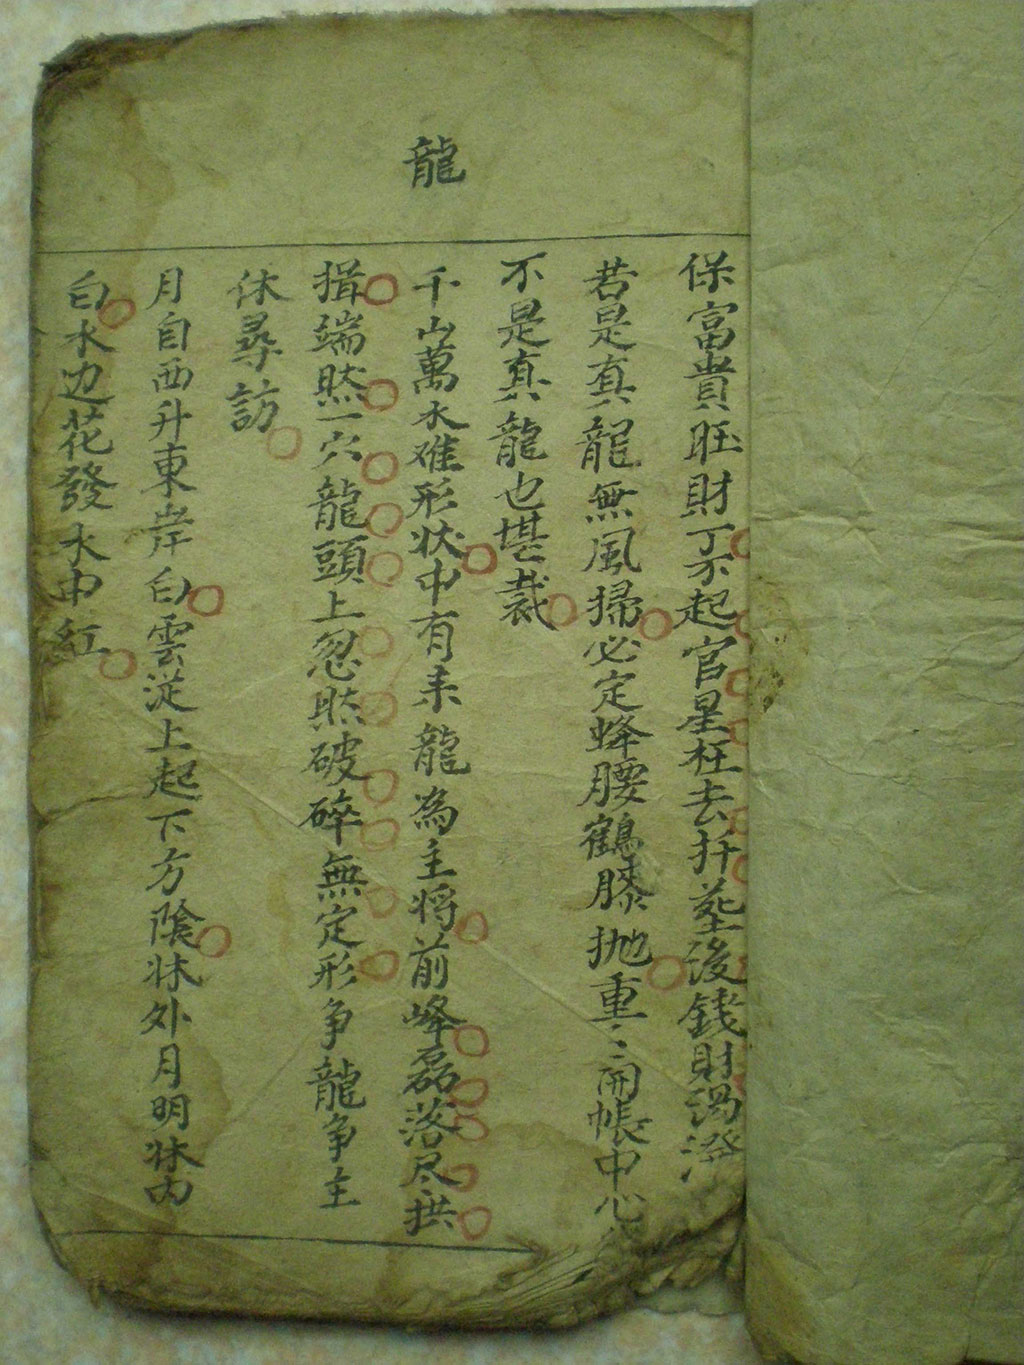 龍
保富貴旺財丁不起官星枉去扦塟後錢財渴潑
若是真龍無風掃必定蜂腰鶴膝抛重〻開帳中心
不是真龍也堪裁
千山萬水难形状中有来龍為主将前峰磊落尽拱
揖端然一穴龍頭上忽然破碎無定形争龍争主
休尋訪
月自西升東岸白雲従上起下方陰牀外月明牀内
白水边花發水中紅